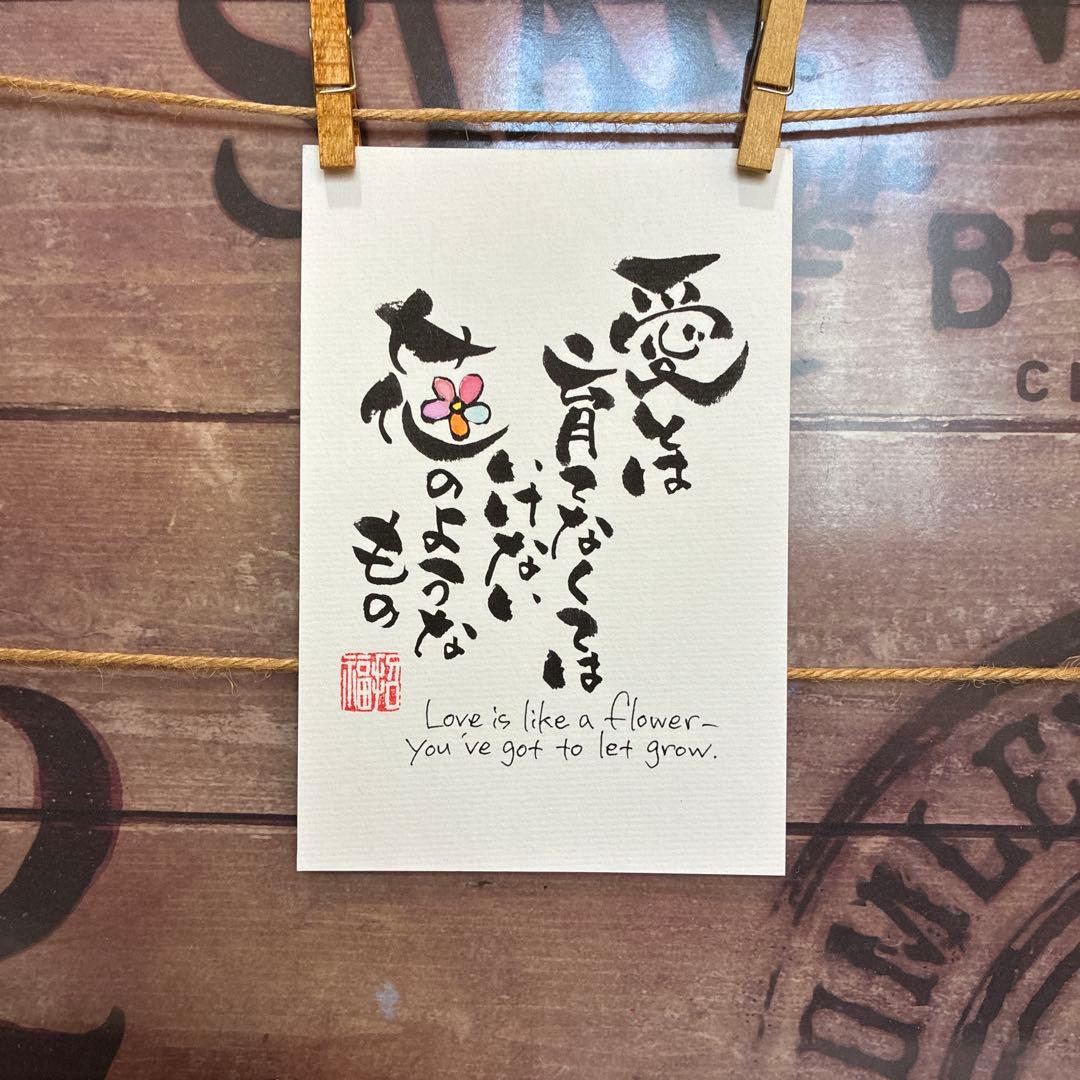 愛とは
育てなくては
いけない
花のような
もの
招福
Love is like a flower–
you've got to let grow.